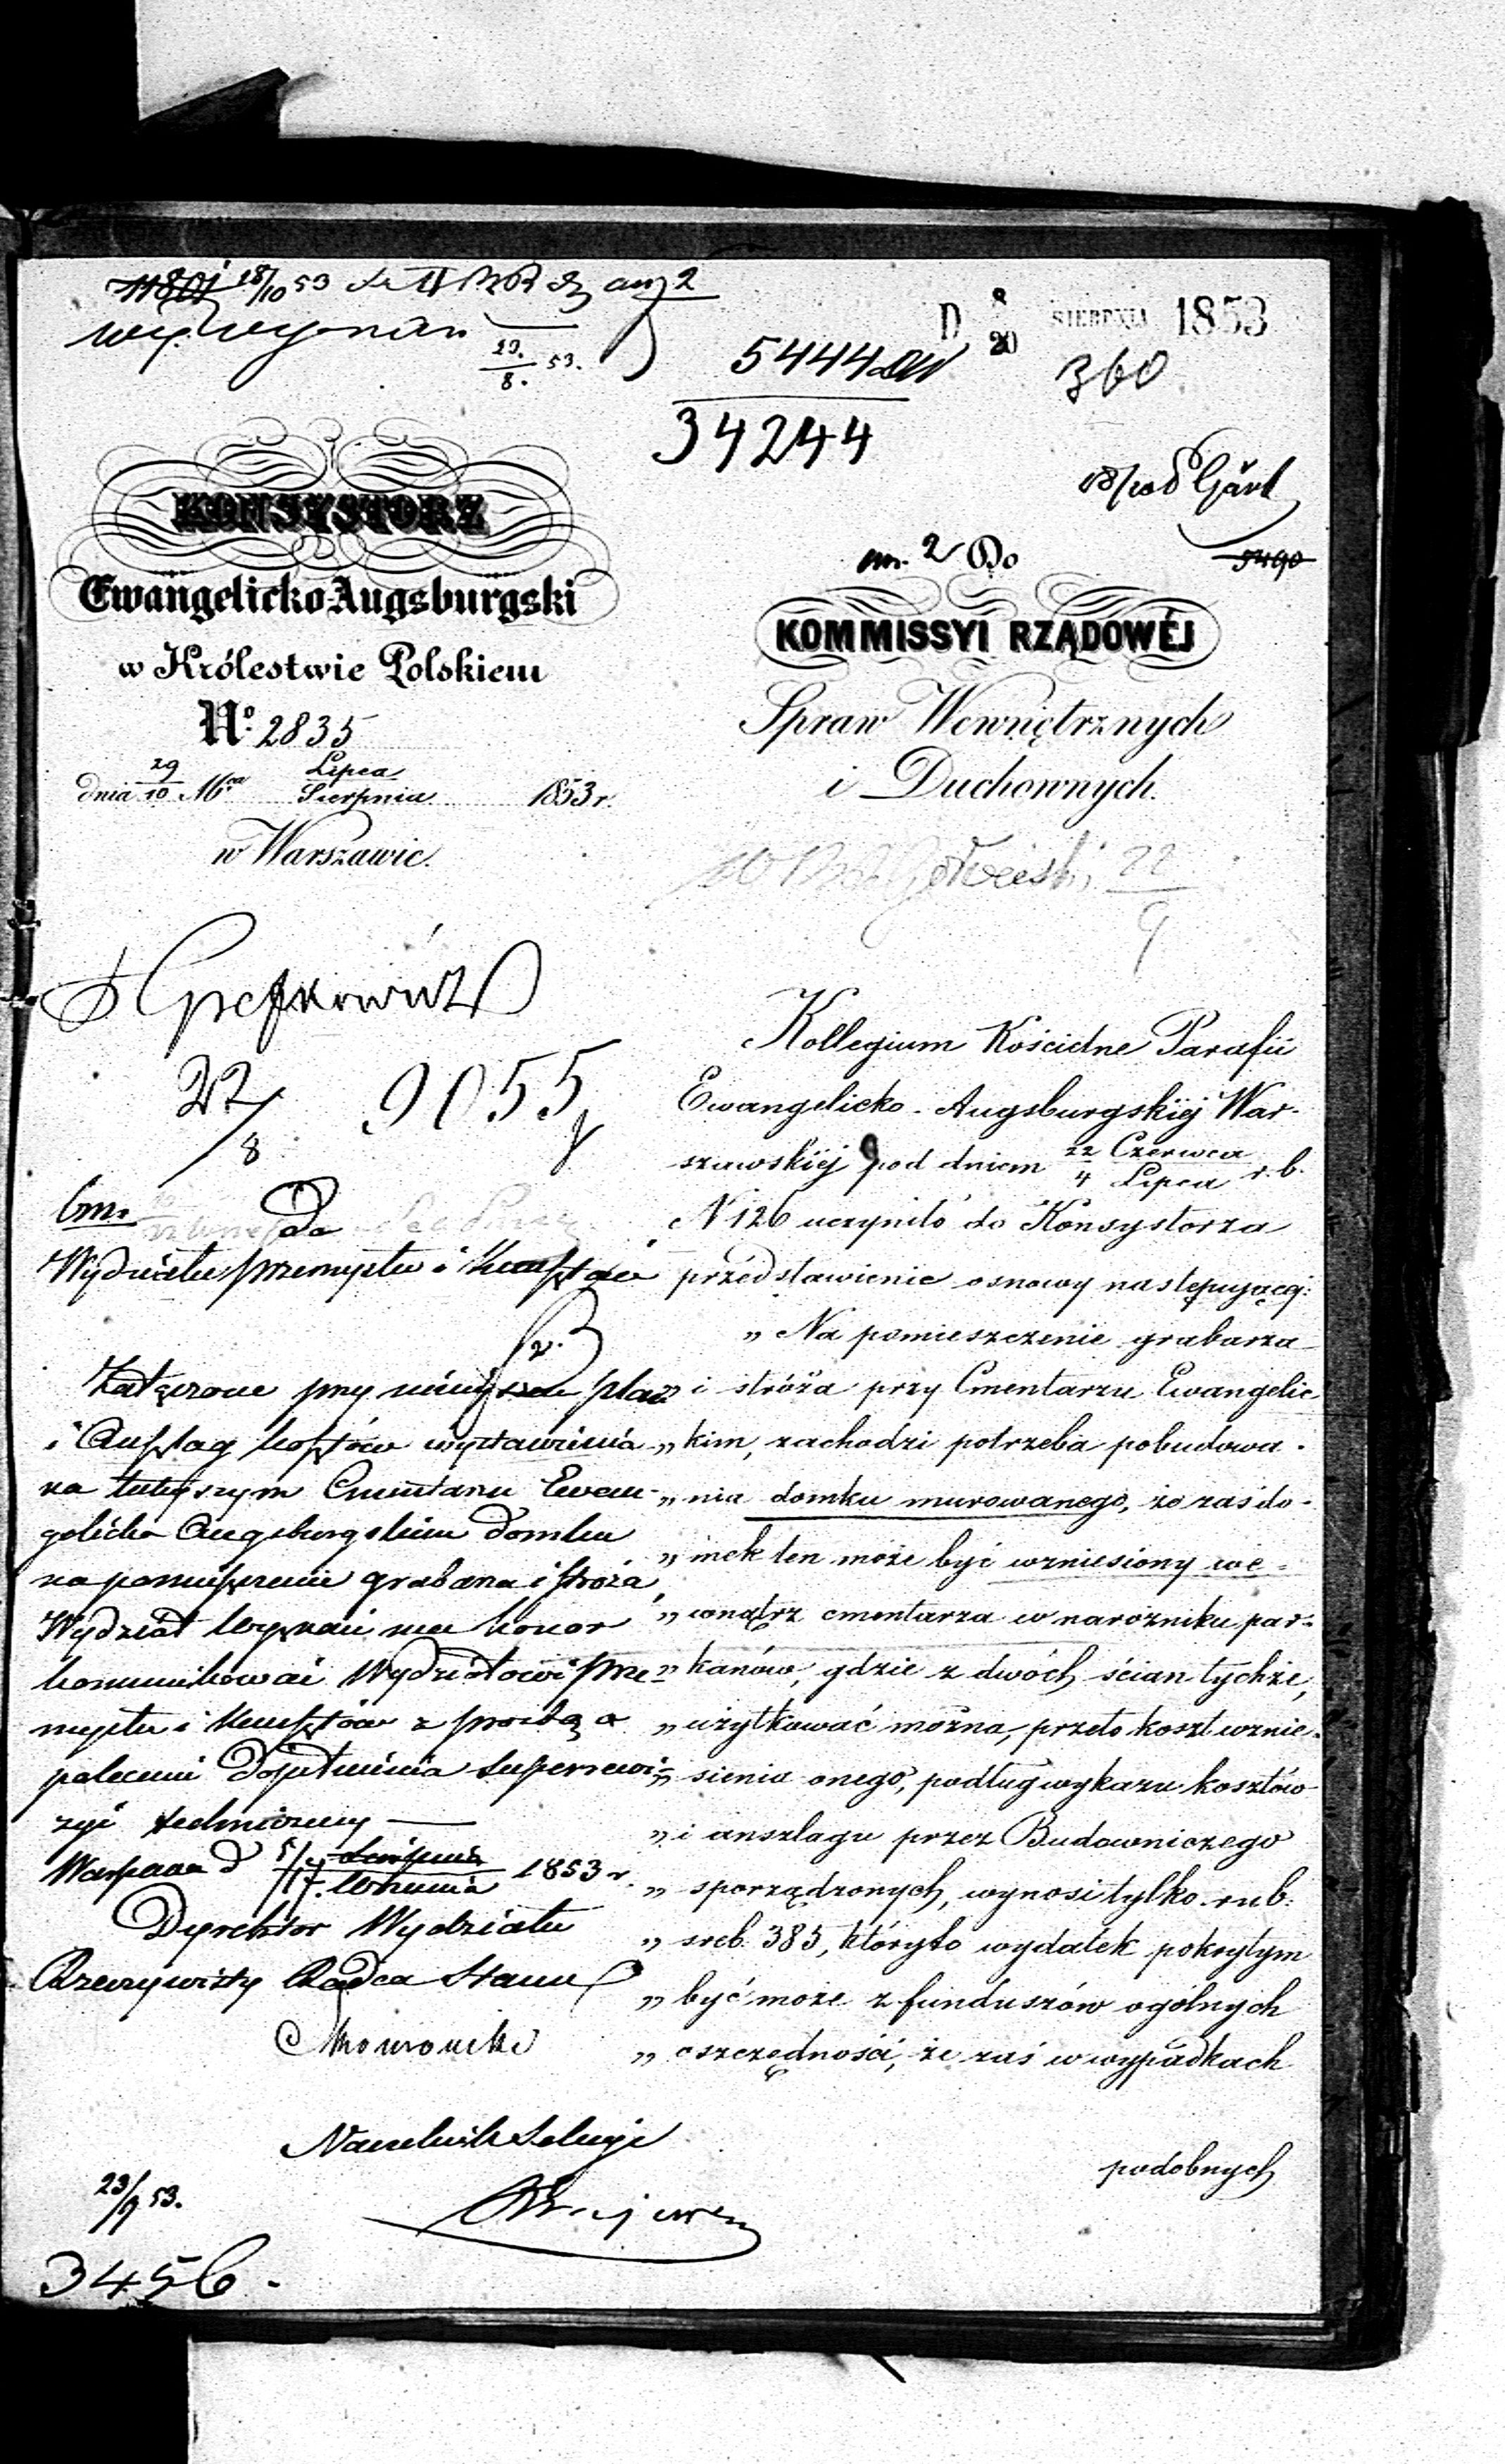 18/10 53
D 8/20 SIERPNIA 1853
29. 53.
8.
5444
360
34244
KONSYSTORZ
Ewangelicko Augsburgski
w Królestwie Polskiem
No. 2835
dnia 29/10 Mca Lipca/Sierpnia 1853 r.
w Warszawie.
an. 2 Do
5490
KOMMISSYI RZĄDOWÉJ
Spraw Wewnętrznych
i Duchownych.
22
9
22/8 9055
Kollegium Kościelne Parafii
Ewangelicko-Augsburgskiéj War-
szawskiéj pod dniem 22 Czerwca/4 Lipca r. b.
N 126 uczyniło do Konsystorza
przedstawienie osnowy następującéj:
„ Na pomieszczenie grabarza
„ i stróża przy Cmentarzu Ewangelic
„ kim, zachodzi potrzeba pobudowa-
„ nia domku murowanego, że zaś do-
„ mek ten może być wzniesiony we-
„ wnątrz cmentarza w narożniku par-
„ kanów, gdzie z dwóch ścian tychże,
„ użytkować można, przeto koszt wznie-
„ sienia onego, podług wykazu kosztów
„ i anszlagu przez Budowniczego
„ sporządzonych, wynosi tylko rub.
„ sreb. 385, któryto wydatek pokrytym
„ być może z funduszów ogólnych
„ oszczędności, że zaś w wypadkach
podobnych
Do
Wydziału Przemysłu i Kunsztów
Załączone przy niniejszem plan
i Anszlag kosztów wystawienia
na tutejszym Cmentarzu Ewan-
gelicko Augsburgskim domku
na pomieszczenie grabarza i stróża,
Wydział Wyznań ma honor
kommunikować Wydziałowi Prze-
mysłu i Kunsztów z prośbą o
polecenie dopełnienia superrewi-
zyi technicznej
Warszawa d 5/17 Września 1853 r.
Dyrektor Wydziału
Rzeczywisty Radca Stanu
Naczelnik Sekcyi
23/9 53.
3456.